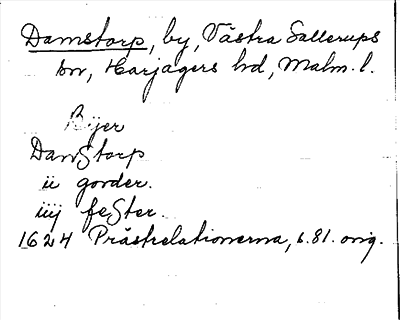 Damstorp, by, Västra Sallerups
sn, Harjagers hd, Malm. l.
Byer
DamStorp
ii gorder.
iiij feSter.
1624 Prästrelationerna, s. 81. orig.